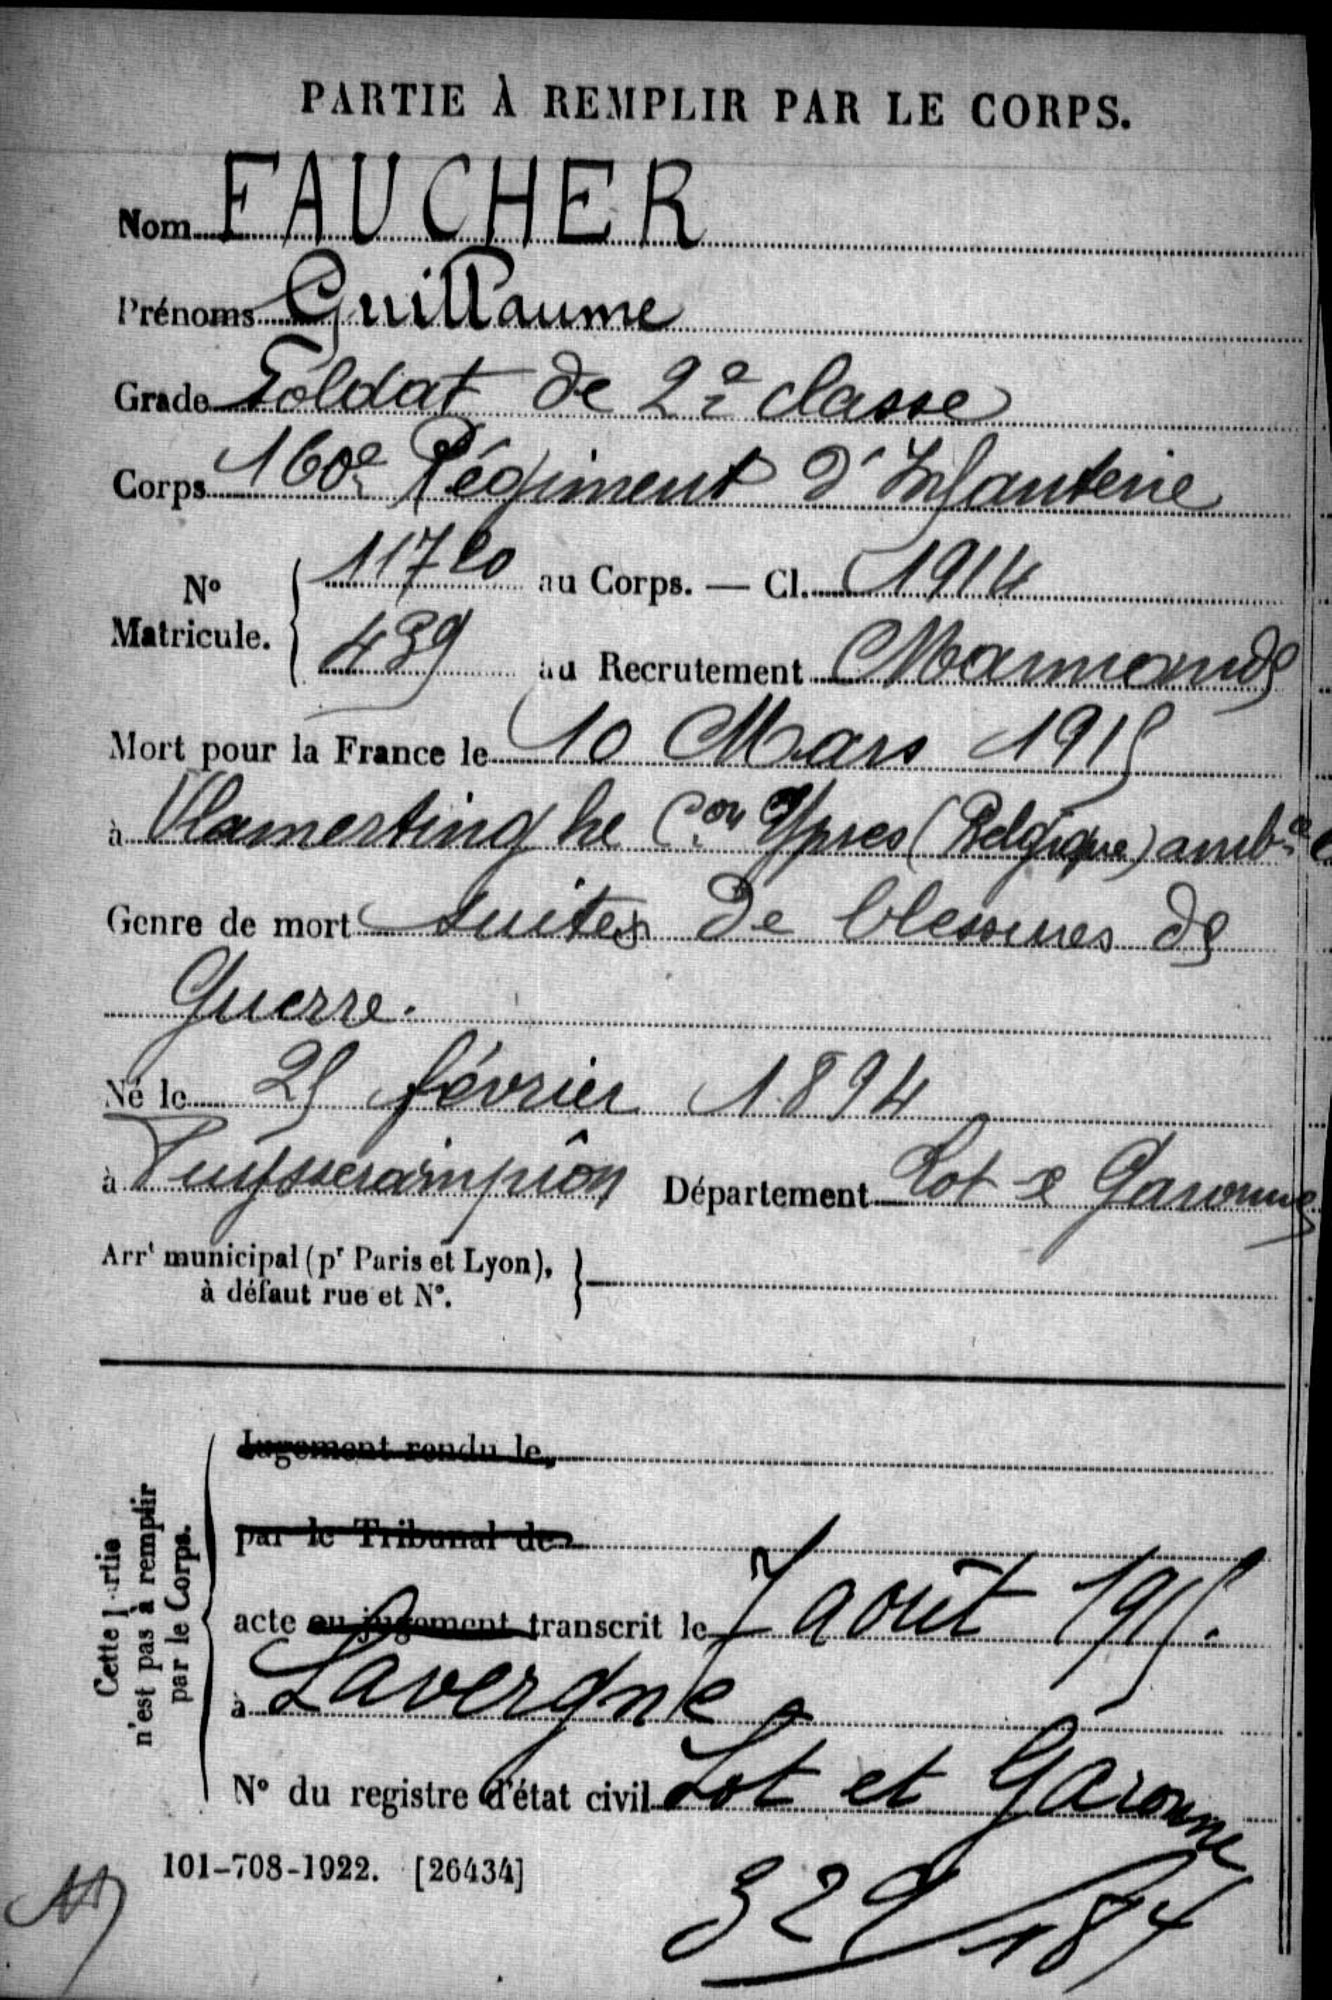 PARTIE À REMPLIR PAR LE CORPS.
Nom FAUCHER
Prénoms Guillaume
Grade Soldat de 2e classe
Corps 160e Régiment d'Infanterie
No Matricule. 11720 au Corps. — Cl. 1914
439 au Recrutement Marmande
Mort pour la France le 10 Mars 1915
à Vlamertinghe Con Ypres (Belgique) ambce
Genre de mort suites de blessures de
Guerre.
Né le 25 février 1894
à Puysserampion Département Lot & Garonne
Arrt municipal (pr Paris et Lyon),
à défaut rue et No.
Cette Partie
n'est pas à remplir
par le Corps.
Jugement rendu le
par le Tribunal de
acte ou jugement transcrit le 7 août 1915.
à Lavergne
No du registre d'état civil Lot et Garonne
101-708-1922. [26434]
329/184